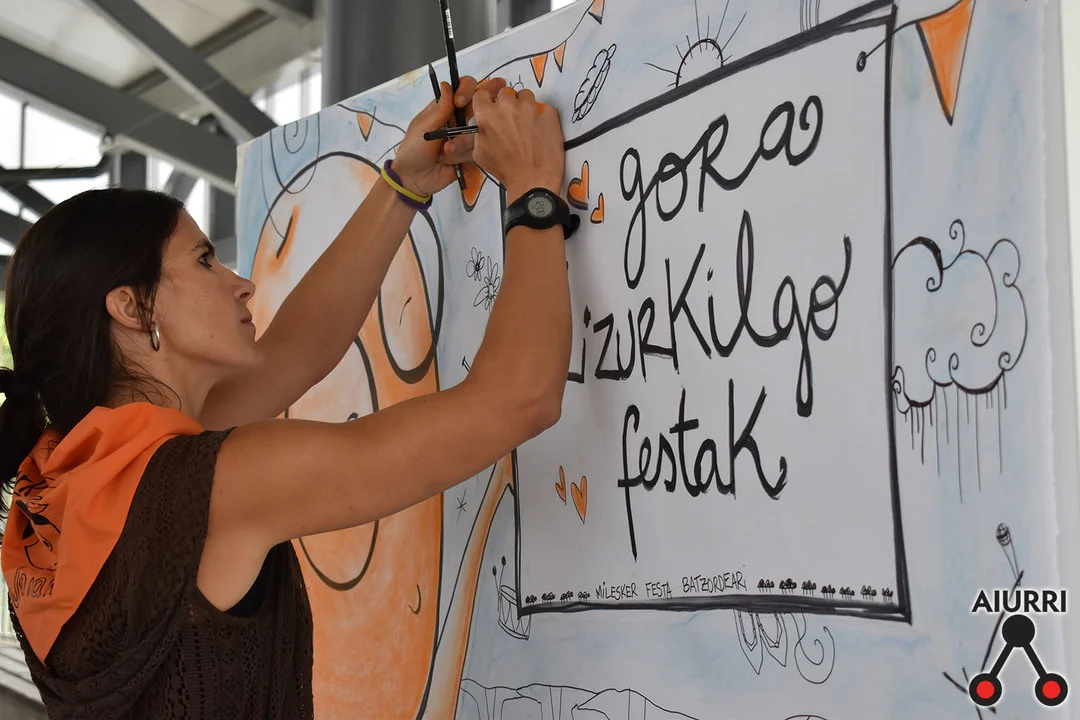 gora
izurkilgo
festak
MILESKER FESTA BATZORDEARi
AIURRI